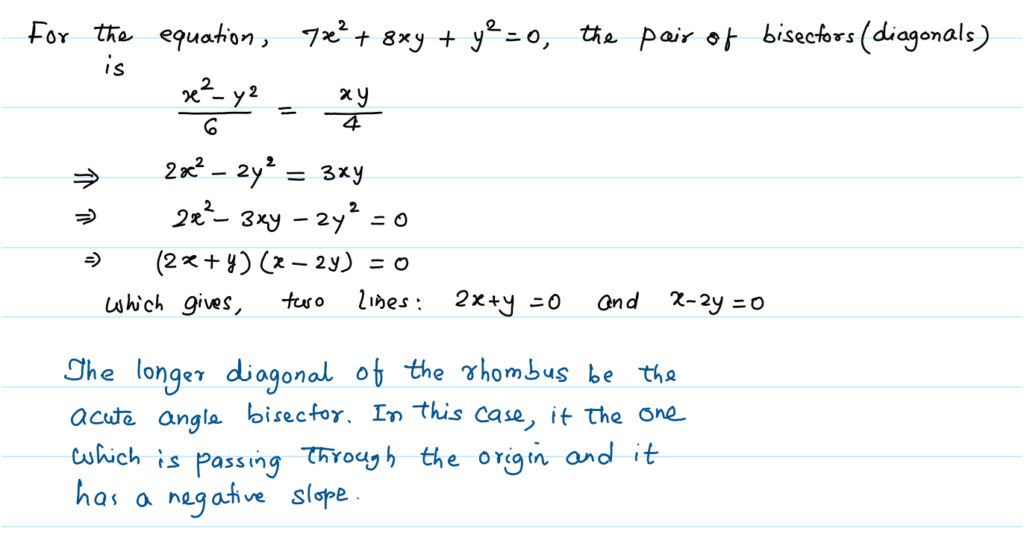 For the equation, 7x² + 8xy + y² = 0, the pair of bisectors (diagonals)
is
(x² - y²)/6 = xy/4
⇒ 2x² - 2y² = 3xy
⇒ 2x² - 3xy - 2y² = 0
⇒ (2x + y) (x - 2y) = 0
which gives, two lines: 2x+y = 0 and x-2y = 0
The longer diagonal of the rhombus be the
acute angle bisector. In this case, it the one
which is passing through the origin and it
has a negative slope.